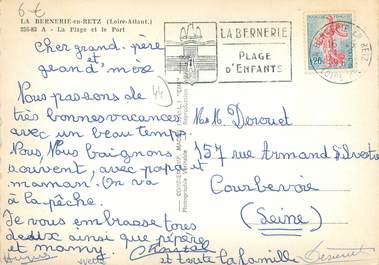 6 €
LA BERNERIE-en-RETZ (Loire-Atlant.)
256-83 A - La Plage et le Port
Cher grand-père et
grand'mère
Nous passons de
très bonnes vacances
avec un beau temps.
Nous, Nous baignons
souvent, avec papa
maman. On va
à la pêche.
Je vous embrasse tous
deux ainsi que pépère
et mamy.
et toute la famille
Yvette
44
LA BERNERIE
PLAGE
D'ENFANTS
0,25
M. M. Derouet
157 rue Armand Silvestre
Courbevoie
(Seine)